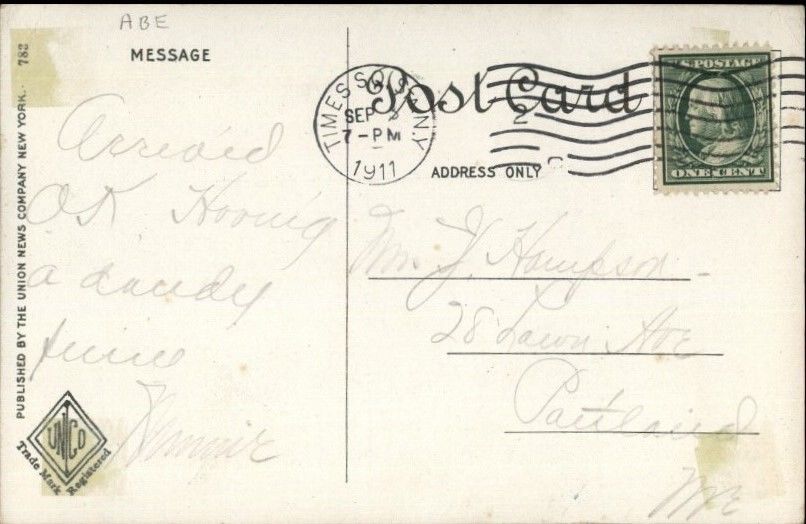 ABE
MESSAGE
Post Card
ADDRESS ONLY
TIMES SQ. STA. N.Y.
SEP 2
7-PM
1911
2
U.S. POSTAGE
ONE CENT
783
PUBLISHED BY THE UNION NEWS COMPANY NEW YORK.
Arrived
OK Having
a dandy
time
Mr. J. Hampson
28 Lawn Ave
Portland
Me
UNCO
Trade Mark Registered